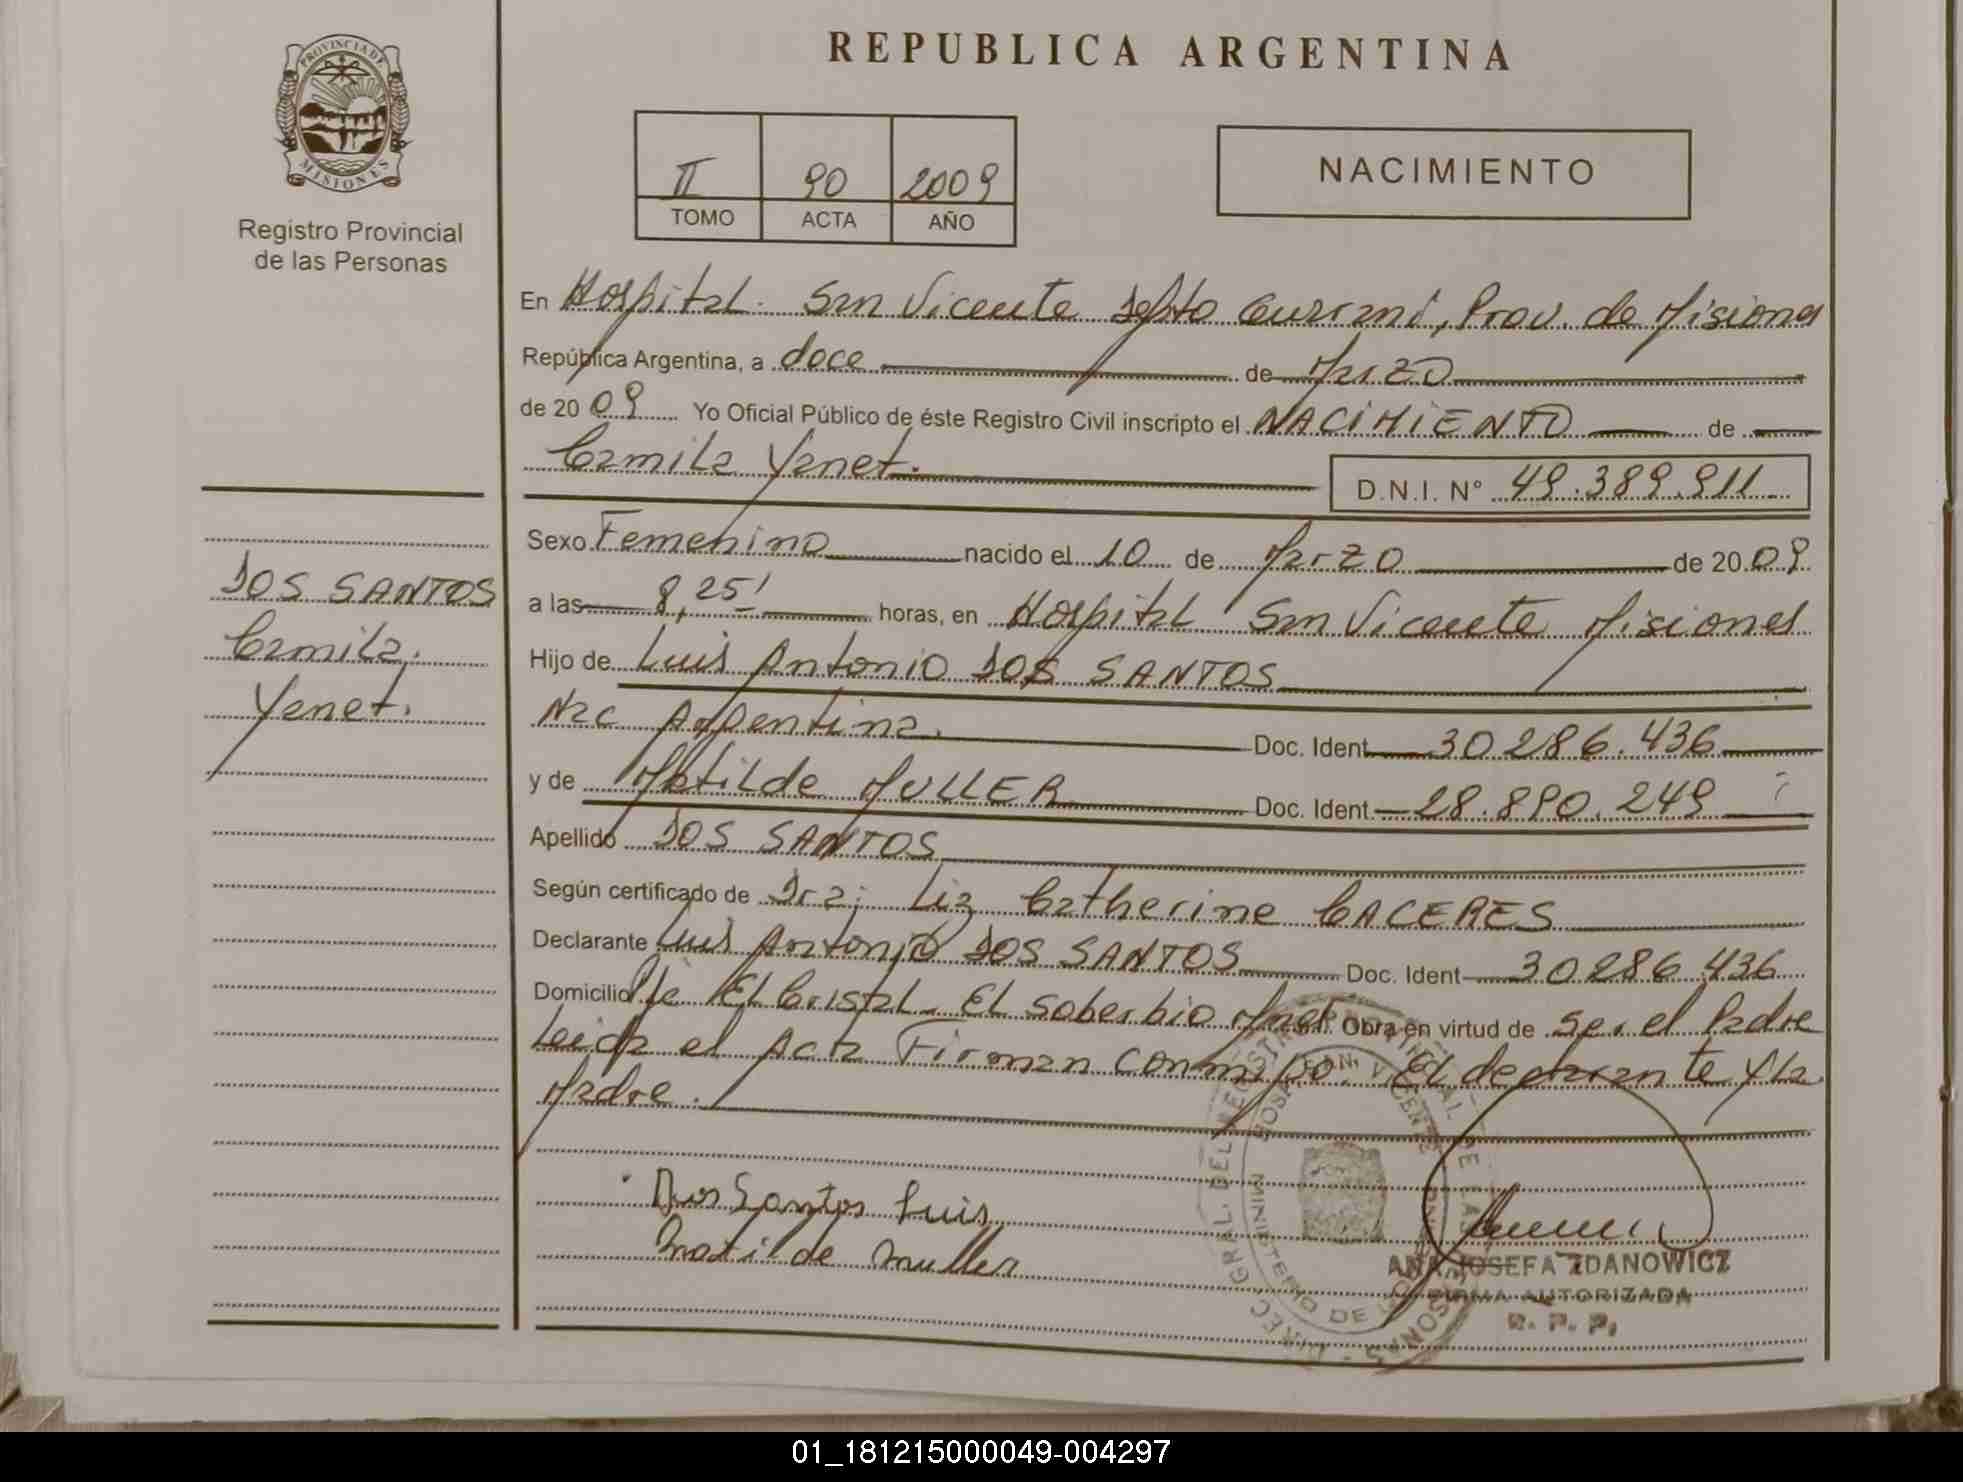 REPUBLICA ARGENTINA
PROVINCIA DE
MISIONES
Registro Provincial
de las Personas
II 90 2009
TOMO ACTA AÑO
NACIMIENTO
En Hospital San Vicente Depto Guarani, Prov. de Misiones
República Argentina, a doce de Marzo
de 2009 Yo Oficial Público de éste Registro Civil inscripto el NACIMIENTO de
Camila Yanet.
D.N.I. Nº 49.389.911
Sexo Femenino nacido el 10 de Marzo de 2009
a las 8,25' horas, en Hospital San Vicente Misiones
Hijo de Luis Antonio DOS SANTOS
Nac Argentina. Doc. Ident 30286.436
y de Matilde MULLER Doc. Ident. 28.890.249
Apellido DOS SANTOS
Según certificado de Dra; Liz Catherine CACERES
Declarante Luis Antonio DOS SANTOS Doc. Ident 30286.436
Domicilio Pje El Cristal El Soberbio Mnes Obra en virtud de Ser el Padre
Leida el Acta Firman conmigo. El declarante y la
Madre.
Dos Santos Luis
Matilde Muller
DOS SANTOS
Camila.
Yanet.
ANA JOSEFA ZDANOWICZ
FIRMA AUTORIZADA
R. P. P.
01_181215000049-004297